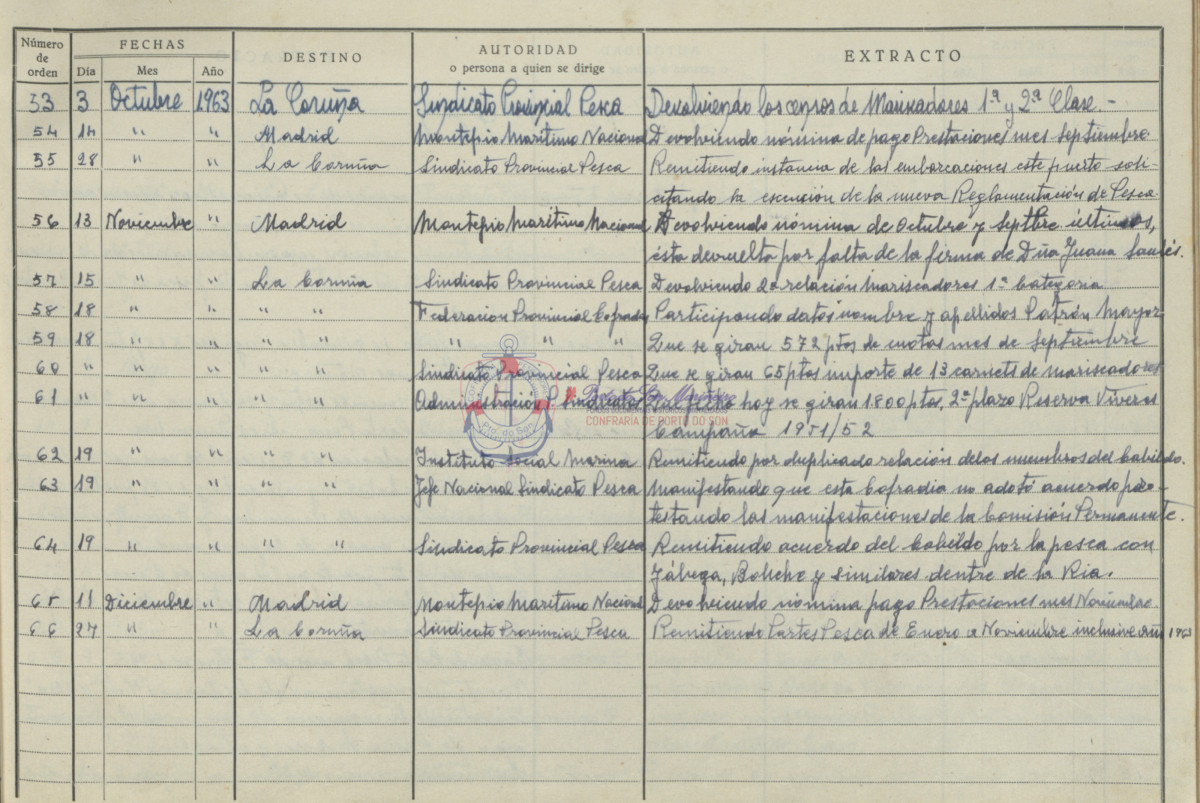 Número de orden FECHAS DESTINO AUTORIDAD o persona a quien se dirige EXTRACTO
Día Mes Año
53 3 Octubre 1963 La Coruña Sindicato Provincial Pesca Devolviendo los censos de Mariscadores 1ª y 2ª Clase.-
54 14 " " Madrid Montepio Maritimo Nacional Devolviendo nómina de pago Prestaciones mes Septiembre
55 28 " " La Coruña Sindicato Provincial Pesca Remitiendo instancia de las embarcaciones este puerto soli-
citando la escención de la nueva Reglamentación de Pesca
56 13 Noviembre " Madrid Montepio Marítimo Nacional Devolviendo nómina de Octubre y Septbre. últimos,
ésta devuelta por falta de la firma de Dña Juana
57 15 " " La Coruña Sindicato Provincial Pesca Devolviendo 2ª relación Mariscadores 1ª Categoria
58 18 " " " " Federacion Provincial Cofradias Participando datos nombre y apellidos Patrón Mayor
59 18 " " " " " " " Que se giran 572 ptas de cuotas mes de Septiembre
60 " " " " " Sindicato Provincial Pesca Que se giran 65 ptas importe de 13 carnets de mariscadores
61 " " " " " Administración P. Sindicatos Que fecha hoy se giran 1.800 ptas, 2º plazo Reserva Viveros
Campaña 1951/52
62 19 " " " " Instituto Social Marina Remitiendo por duplicado relación delos miembros del Cabildo.
63 19 " " " " Jefe Nacional Sindicato Pesca Manifestando que esta Cofradia no adotó acuerdo pro-
testando las manifestaciones de la Comisión Permanente.
64 19 " " " " Sindicato Provincial Pesca Remitiendo acuerdo del Cabildo por la pesca con
Jábega, Boliche y similares dentro de la Ria.
65 11 Diciembre " Madrid Montepio Maritimo Nacional Devolviendo nómina pago Prestaciones mes Novimbre.
66 27 " " La Coruña Sindicato Provincial Pesca Remitiendo Partes Pesca de Enero a Noviembre inclusive año 1963
Pto. do Son
CONFRARÍA DE PORTO DO SON